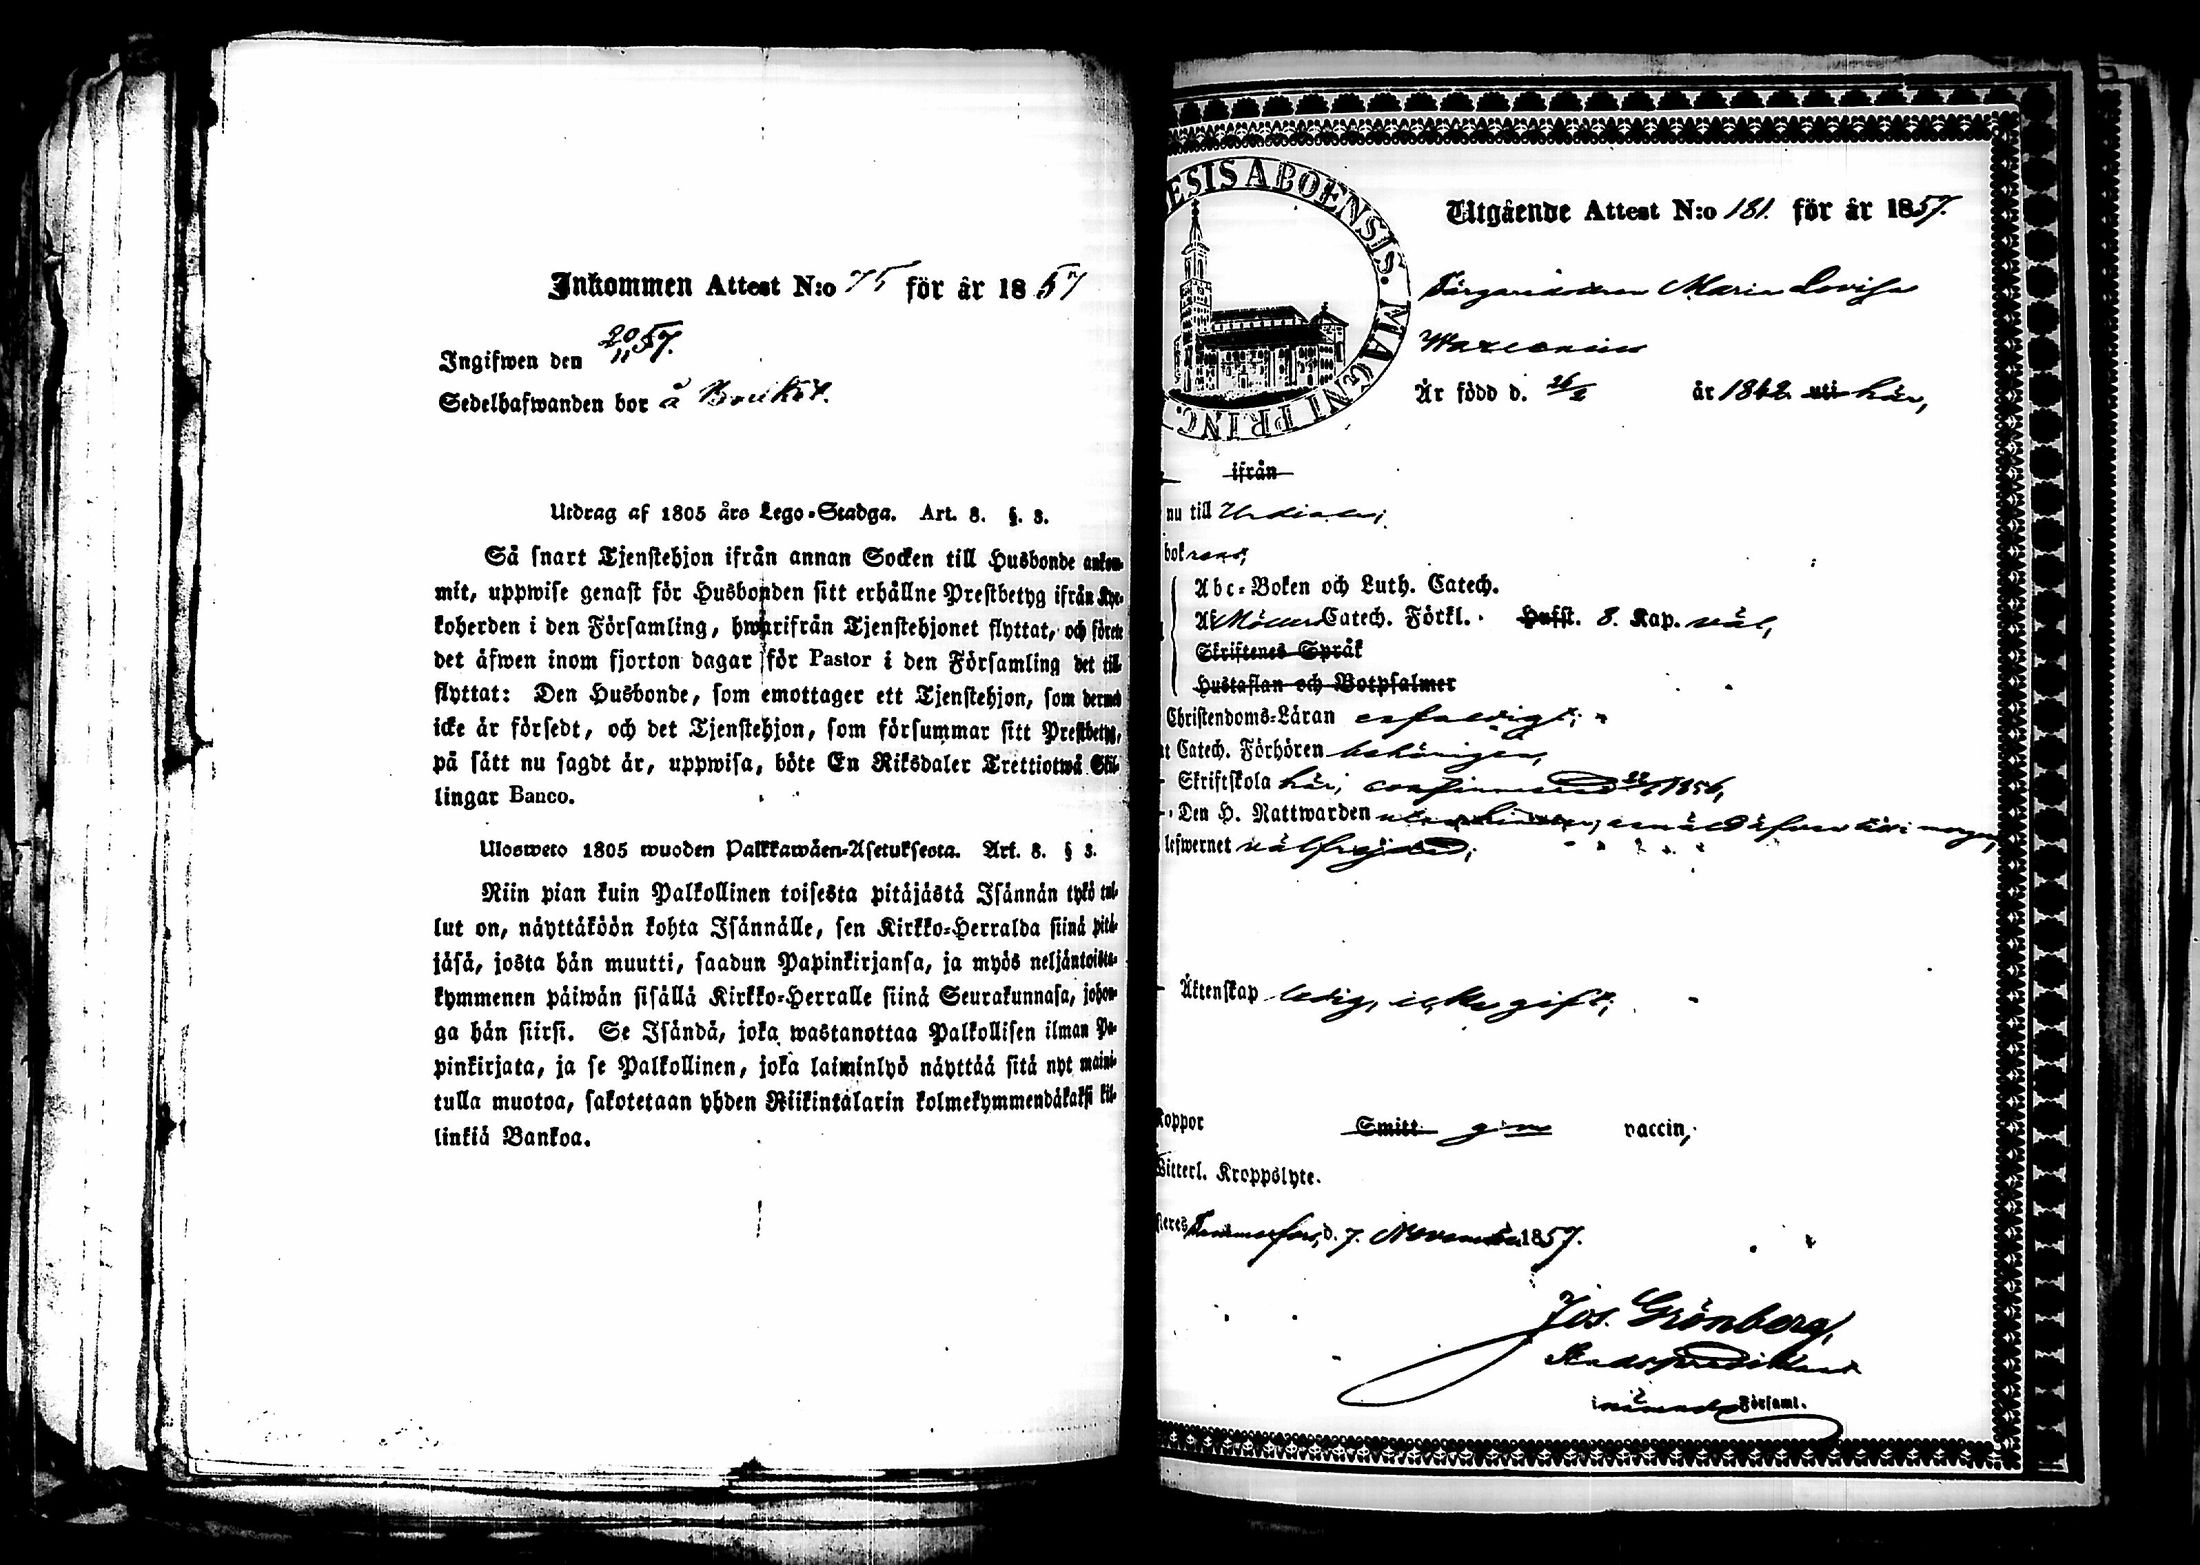 Inkommen Attest N:o 75 för år 1857
Ingifwen den 20/11 57.
Sedelhafwanden bor å
Utdrag af 1805 års Lego-Stadga. Art. 8. §. 3.
Så snart Tjenstehjon ifrån annan Socken till Husbonde ankom-
mit, uppwise genast för Husbonden sitt erhållne Prestbetyg ifrån Kyr-
koherden i den Församling, hwarifrån Tjenstehjonet flyttat, och förete
det äfwen inom fjorton dagar för Pastor i den Församling det till-
flyttat: Den Husbonde, som emottager ett Tjenstehjon, som dermed
icke är försedt, och det Tjenstehjon, som försummar sitt Prestbetyg,
på sätt nu sagdt är, uppwisa, böte En Riksdaler Trettiotwå Skil-
lingar Banco.
Ulosweto 1805 wuoden Palkkawäen-Asetuksesta. Art. 8. § 3.
Niin pian kuin Palkollinen toisesta pitäjästä Isännän tykö tul-
lut on, näyttäköön kohta Isännälle, sen Kirkko-Herralda siinä pitä-
jäsä, josta hän muutti, saadun Papinkirjansa, ja myös neljäntoista-
kymmenen päiwän sisällä Kirkko-Herralle siinä Seurakunnasa, johon-
ga hän siirsi. Se Isändä, joka wastanottaa Palkollisen ilman Pa-
pinkirjata, ja se Palkollinen, joka laiminlyö näyttää sitä nyt maini-
tulla muotoa, sakotetaan yhden Riikintalarin kolmekymmendäkaksi kil-
linkiä Bankoa.
ESIS ABOENSIS. MAGNI PRINC.
Utgående Attest N:o 181. för år 1857.
Maria Lovisa
Är född d. 26/2 år 1842 uti här,
ifrån
nu till Urdiala;
bok rent;
Abc-Boken och Luth. Catech.
Af Möllers Catech. Förkl. Hufst. 8. Kap. väl,
Skriftenes Språk
Hustaflan och Botpsalmer
Christendoms-Läran enfaldigt;
Catech. Förhören behörigen,
Skriftskola här, confirmerad 22/6 1856,
Den H. Nattwarden
lefwernet välfrejdad;
Äktenskap ledig, icke gift;
Koppor Smitt gm vaccin,
Witterl. Kroppslyte.
Tammerfors, d. 7. November 1857.
Jos. Grönberg,
Stadspredikant
i nämnde Församl.